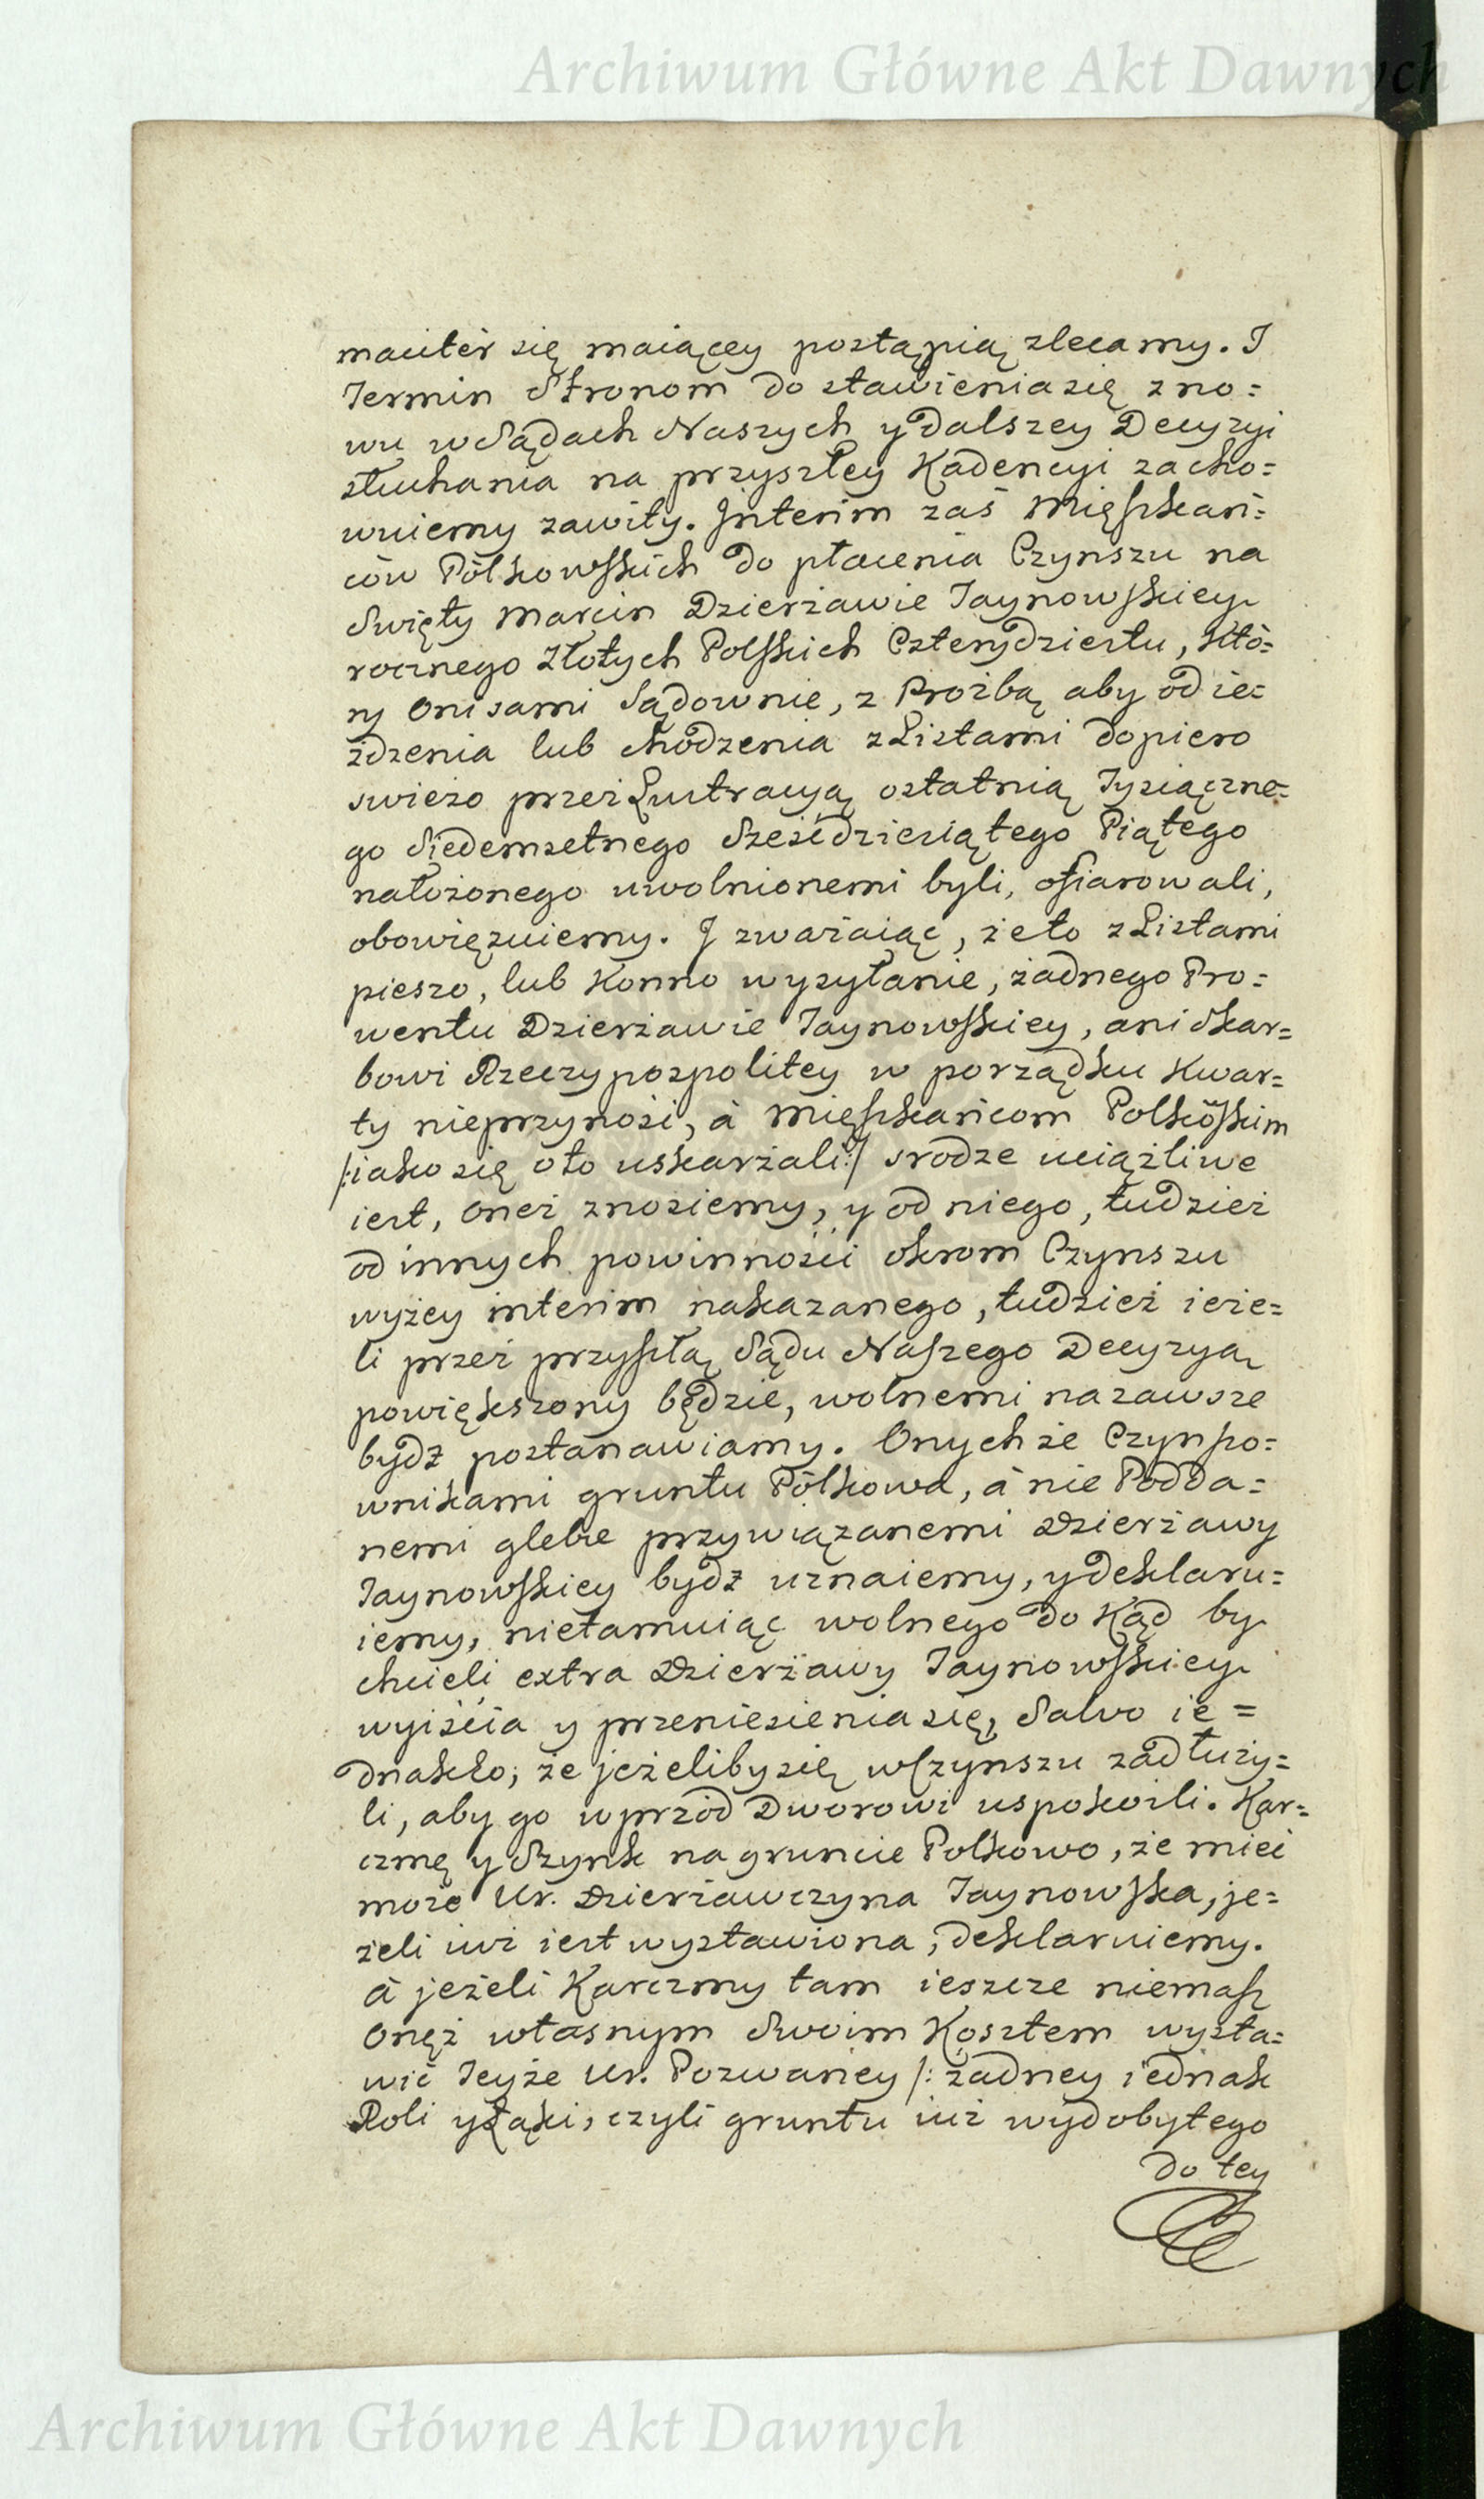 Archiwum Główne Akt Dawnych
maciter się maiącey postąpią zlecamy. I
Termin Stronom do stawienia się zno=
wu w Sądach Naszych y dalszey Decyzyi
słuchania na przyszłey Kadencyi zacho=
wuiemy zawity. Interim zaś Mięszkań=
ców Pólkowskich do płacenia Czynszu na
Swięty Marcin Dzierżawie Jaynowskiey
rocznego Złotych Polskich Czterydziestu, któ=
ry Oni sami Sądownie, z Proźbą aby od ie=
żdzenia lub chodzenia z Listami dopiero
swieżo przez Lustracyą ostatnią Tysiączne=
go Siedemsetnego Sześćdziesiątego Piątego
nałożonego uwolnionemi byli, ofiarowali,
obowięzuiemy. J zważaiąc, że to z Listami
pieszo, lub Konno wysyłanie, żadnego Pro=
wentu Dzierżawie Jaynowskiey, ani Skar=
bowi Rzeczypospolitey w porządku Kwar=
ty nieprzynosi, à Mięszkańcom Polkoskim
/:iako się oto uskarżali:/ srodze uciążliwe
iest, Oneż znosiemy, y od niego, tudzież
od innych powinności okrom Czynszu
wyżey interim nakazanego, tudzież ieże=
li przez przyszłą Sądu Naszego Decyzyą
powiększony będzie, wolnemi nazawsze
bydz postanawiamy. Onychże Czynszo=
wnikami gruntu Pólkowa, à nie Podda=
nemi glebie przywiązanemi Dzierżawy
Jaynowskiey bydź uznaiemy, y deklaru=
iemy, nietamuiąc wolnego do Kąd by
chcieli extra Dzierżawy Jaynowskiey
wyiścia y przeniesienia się, Salvo ie=
dnakło, że jeżeliby się w Czynszu zadłuży=
li, aby go wprzód Dworowi uspokoili. Kar=
czmę y Szynk na gruncie Polkowo, że mieć
może Ur. Dzierżawczyna Jaynowska, je=
żeli iuż iest wystawiona, deklaruiemy.
à jeżeli Karczmy tam ieszcze niemasz
Onęż własnym Swoim Kosztem wysta=
wić Teyże Ur. Pozwaney /: żadney iednak
Roli y Łąki, czyli gruntu iuż wydobytego
do tey
Archiwum Główne Akt Dawnych